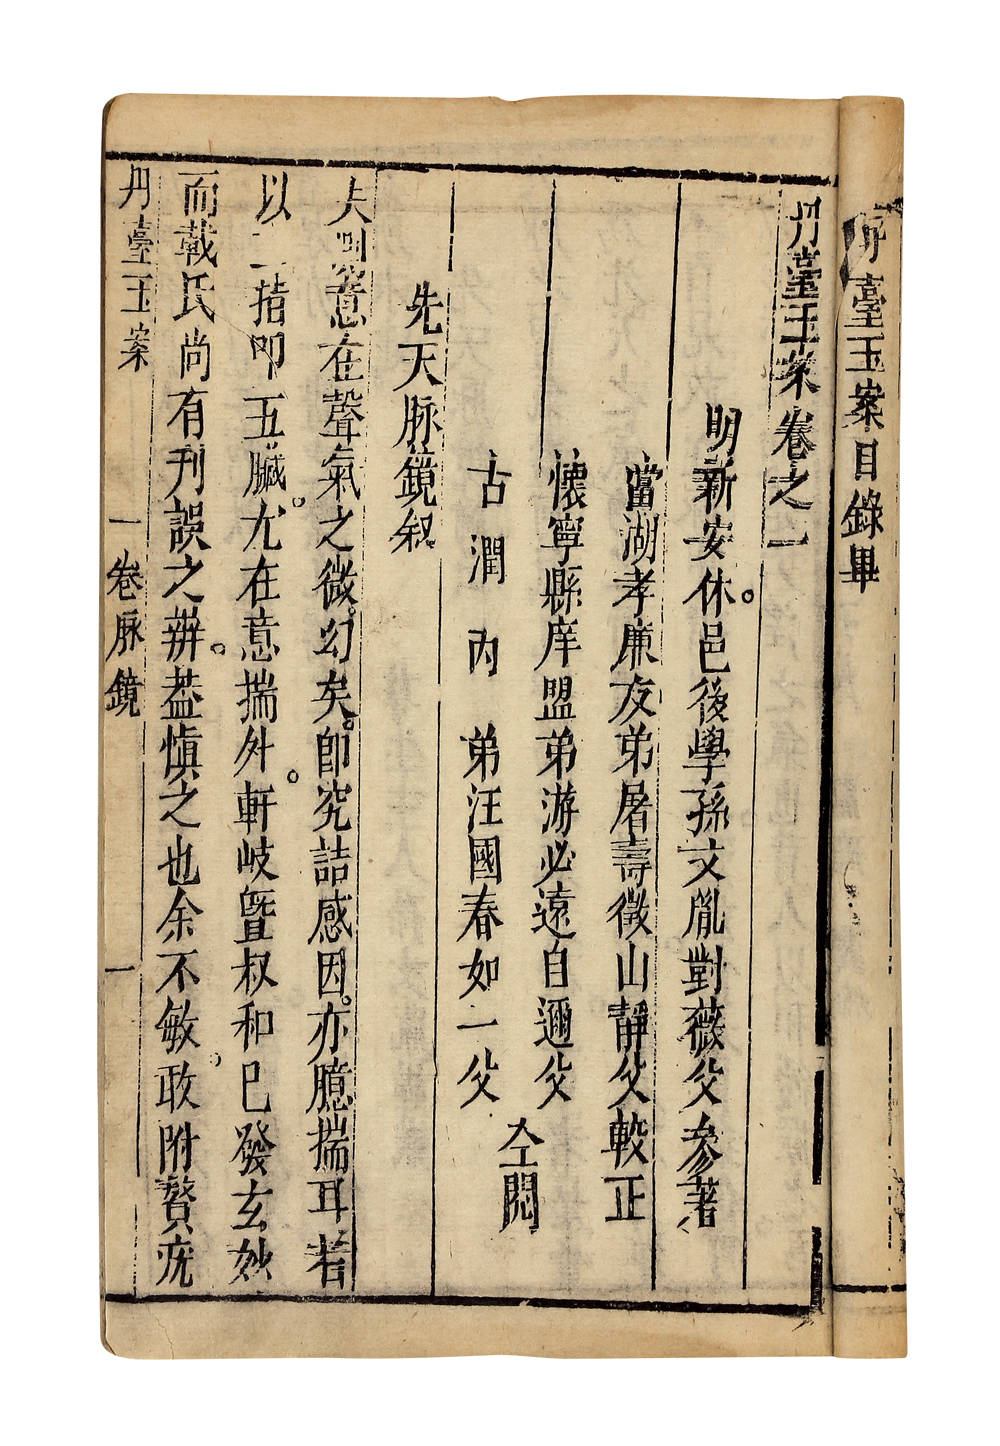 丹臺玉案目錄畢
丹臺玉案卷之一
明新安休邑後學孫文胤對薇父參著
當湖孝廉友弟屠壽徵山靜父較正
懷寧縣庠盟弟游必遠自邇父
古潤內弟汪國春如一父
仝閱
先天脉鏡叙
夫叩意在聲氣之微幻矣即究詰感因亦臆揣耳若
以二指叩五臟尤在意揣外軒岐暨叔和已發玄妙
而戴氏尚有刊誤之辨葢慎之也余不敏敢附贅疣
丹臺玉案
一卷脉鏡
一